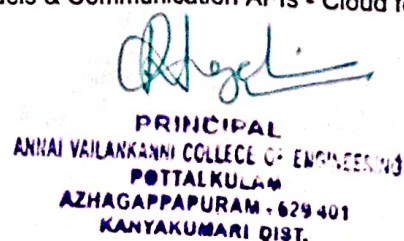 & Communication APIs - Cloud
PRINCIPAL
ANNAI VAILANKANNI COLLECE OF ENGINEERING
POTTALKULAM
AZHAGAPPAPURAM - 629 401
KANYAKUMARI DIST.